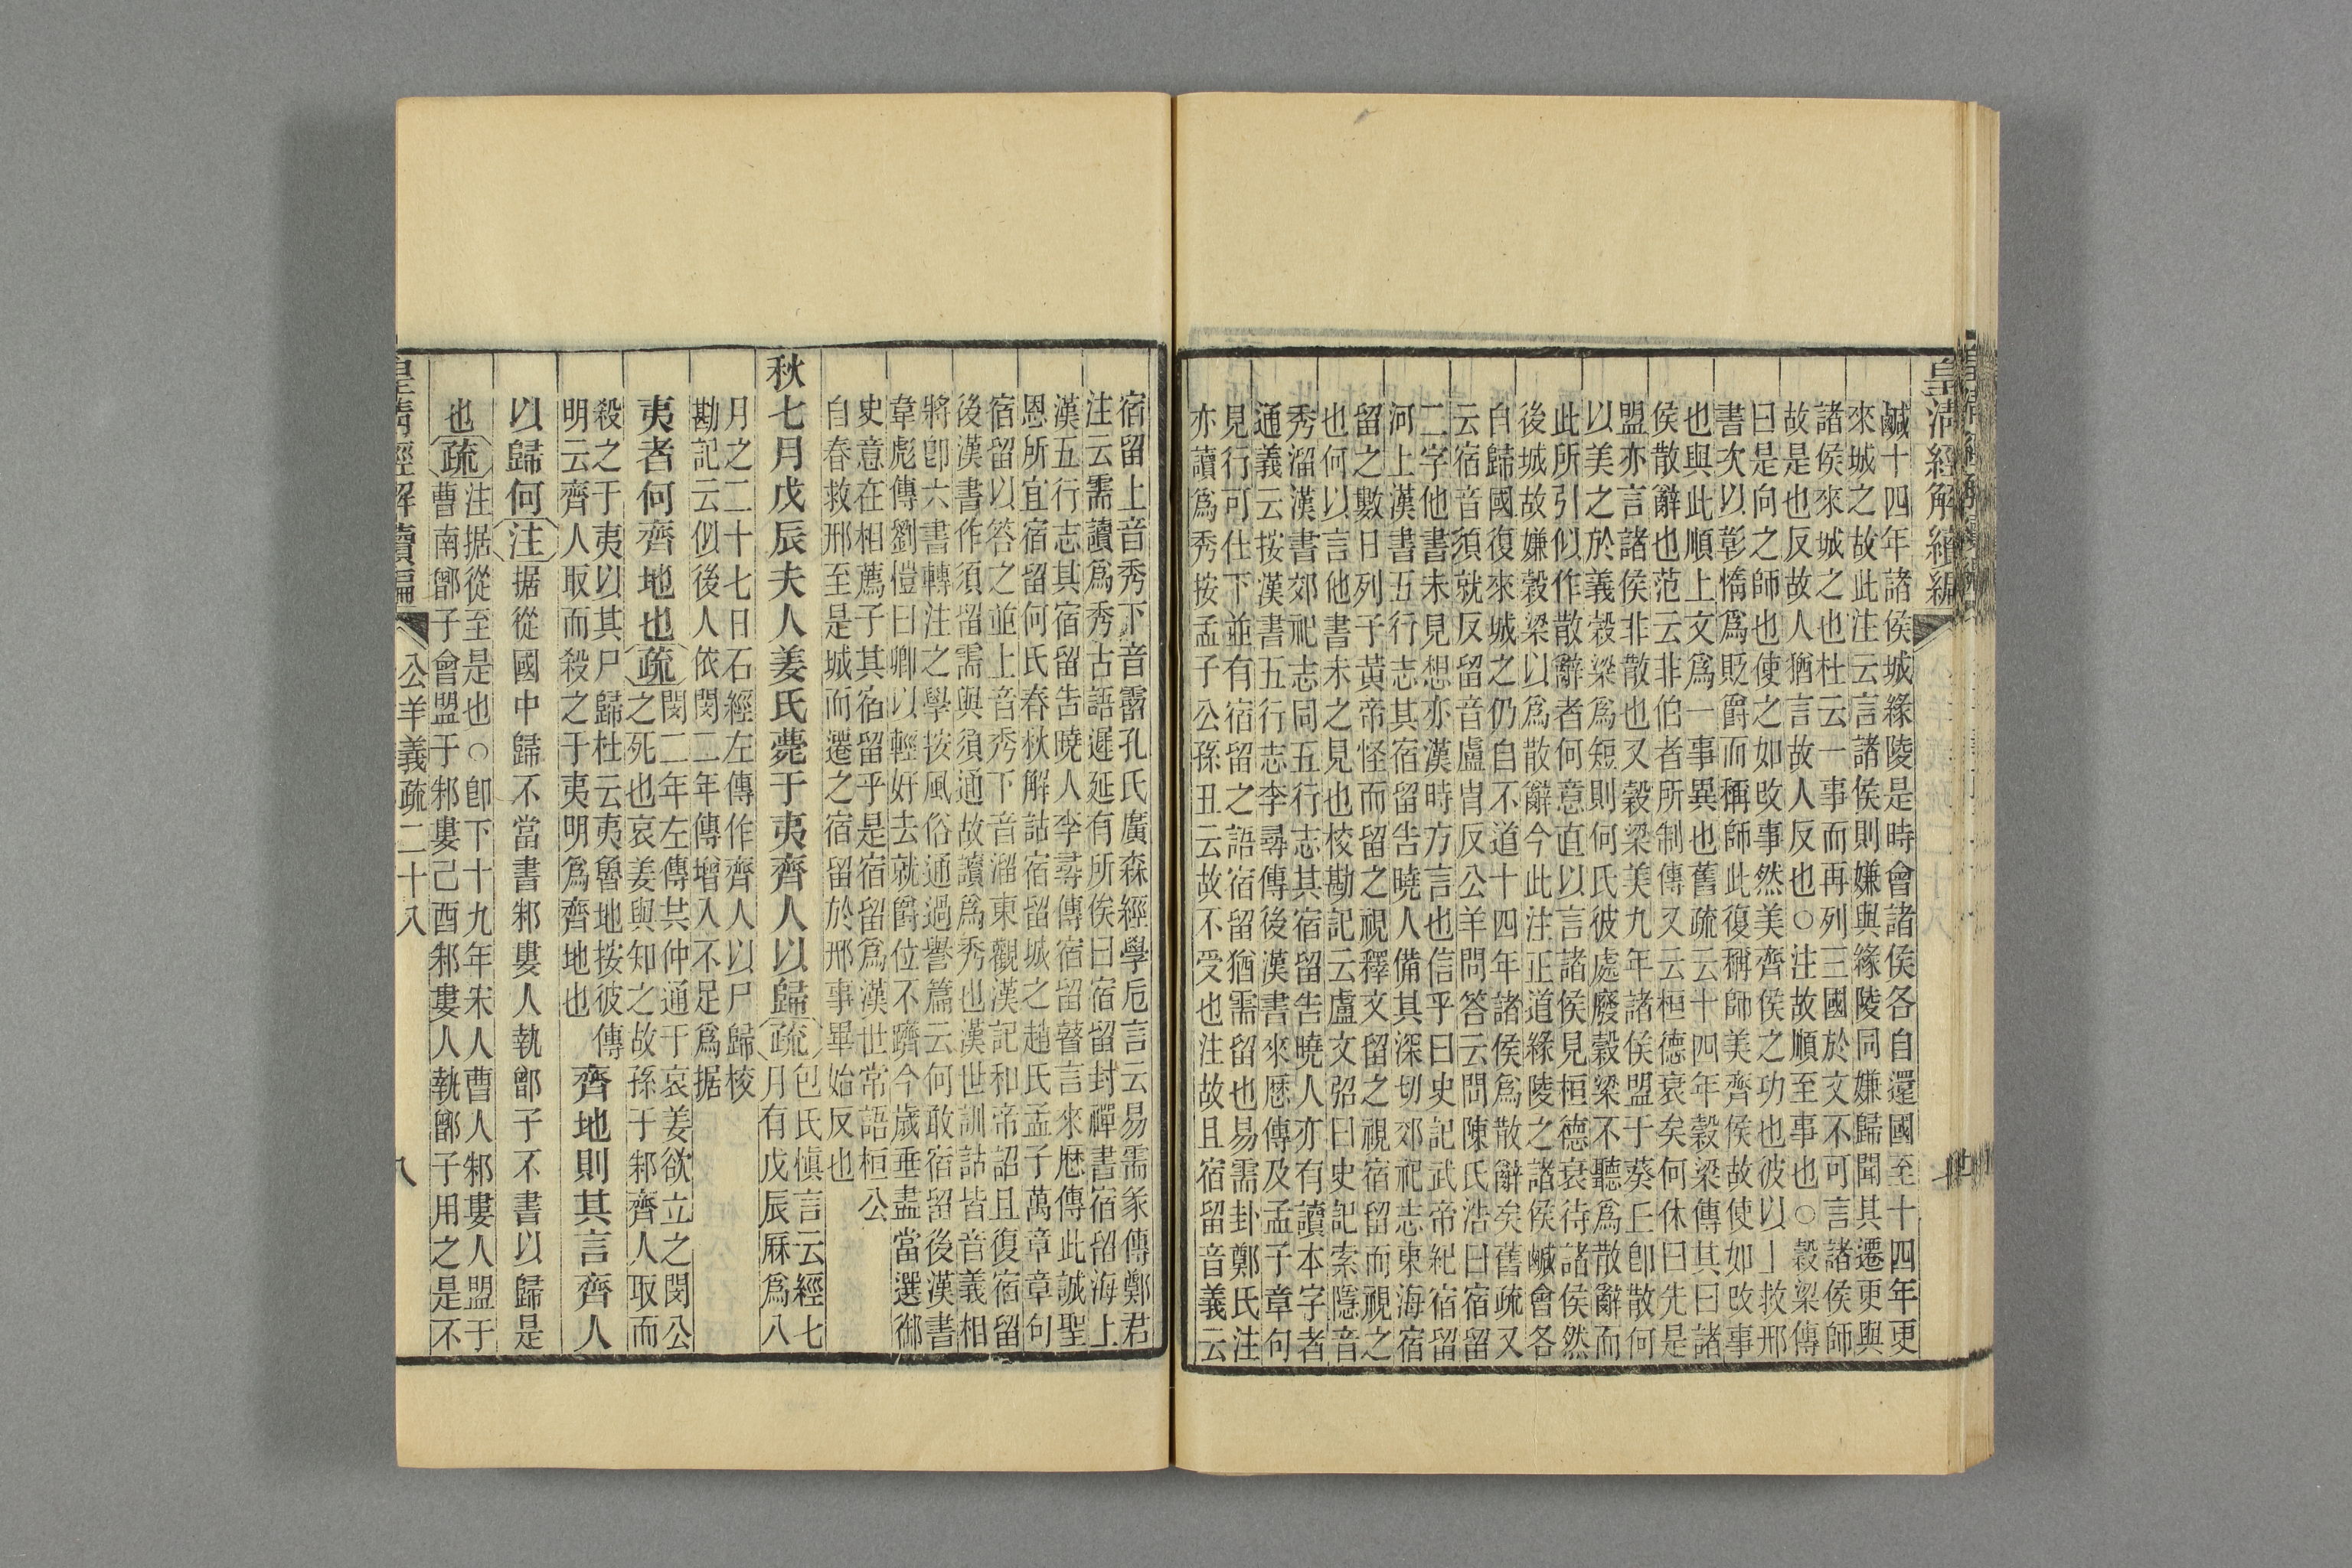 皇清經解續編
鹹十四年諸侯城緣陵是時會諸侯各自還國至十四年更
來城之故此注云言諸侯則嫌與緣陵同嫌歸聞其遷更與
諸侯來城之也杜云一事而再列三國於文不可言諸侯師
故是也反故人猶言故人反也○注故順至事也○穀梁傳
曰是向之師也使之如攺事然美齊侯之功也彼以上救邢
書次以彰惰爲貶爵而稱師此復稱師美齊侯故使如攺事
也與此順上文爲一事異也舊疏云十四年穀梁傳其曰諸
侯散辭也范云非伯者所制傳又云桓德衰矣何休曰先是
盟亦言諸侯非散也又穀梁美九年諸侯盟于葵丘卽散何
以美之於義穀梁爲短則何氏彼處廢穀梁不聽爲散辭而
此所引似作散辭者何意直以言諸侯見桓德衰待諸侯然
後城故嫌穀梁以爲散辭今此注正道緣陵之諸侯鹹會各
自歸國復來城之仍自不道十四年諸侯爲散辭矣舊疏又
云宿音須就反留音盧胄反公羊問答云問陳氏浩曰宿留
二字他書未見想亦漢時方言也信乎曰史記武帝紀宿留
河上漢書五行志其宿留告曉人備其深切郊祀志東海宿
留之數日列子黃帝怪而留之視釋文留之視宿留而視之
也何以言他書未之見也校勘記云盧文弨曰史記索隱音
秀溜漢書郊祀志同五行志其宿留告曉人亦有讀本字者
通義云按漢書五行志李尋傳後漢書來歷傳及孟子章句
見行可仕下並有宿留之語宿留猶需留也易需卦鄭氏注
亦讀爲秀按孟子公孫丑云故不受也注故且宿留音義云
宿留上音秀下音霤孔氏廣森經學卮言云易需彖傳鄭君
注云需讀爲秀古語遲延有所俟曰宿留封禪書宿留海上
漢五行志其宿留告曉人李尋傳宿留瞽言來歷傳此誠聖
恩所宜宿留何氏春秋解詁宿留城之趙氏孟子萬章章句
宿留以答之並上音秀下音溜東觀漢記和帝詔且復宿留
後漢書作須留需與須通故讀爲秀也漢世訓詁皆音義相
將卽六書轉注之學按風俗通過譽篇云何敢宿留後漢書
韋彪傳劉愷曰卿以輕好去就爵位不躋今歲垂盡當選御
史意在相薦子其宿留乎是宿留爲漢世常語桓公
自春救邢至是城而遷之宿留於邢事畢始反也
秋七月戊辰夫人姜氏薨于夷齊人以歸疏包氏愼言云經七
月有戊辰厤爲八
月之二十七日石經左傳作齊人以尸歸校
勘記云似後人依閔二年傳增入不足爲据
夷者何齊地也疏閔二年左傳共仲通于哀姜欲立之閔公
之死也哀姜與知之故孫于邾齊人取而
殺之于夷以其尸歸杜云夷魯地按彼傳
明云齊人取而殺之于夷明爲齊地也
齊地則其言齊人
以歸何注据從國中歸不當書邾婁人執鄫子不書以歸是
也疏注据從至是也○卽下十九年宋人曹人邾婁人盟于
曹南鄫子會盟于邾婁己酉邾婁人執鄫子用之是不
皇清經解續編
公羊義疏二十八
八